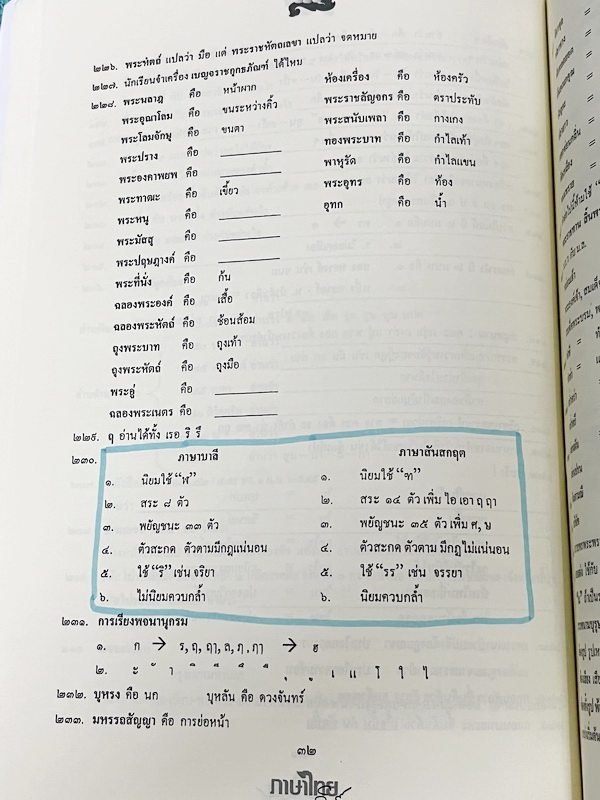 ๒๒๖. พระหัตถ์ แปลว่า มือ แต่ พระราชหัตถเลขา แปลว่า จดหมาย
๒๒๗. นักเรียนจำเครื่อง เบญจราชกกุธภัณฑ์ ได้ไหม
๒๒๘. พระนลาฎ คือ หน้าผาก ห้องเครื่อง คือ ห้องครัว
พระอุณาโลม คือ ขนระหว่างคิ้ว พระราชลัญจกร คือ ตราประทับ
พระโลมจักษุ คือ ขนตา พระสนับเพลา คือ กางเกง
พระปราง คือ ทองพระบาท คือ กำไลเท้า
พระองคาพยพ คือ พาหุรัด คือ กำไลแขน
พระทาฒะ คือ เขี้ยว พระอุทร คือ ท้อง
พระหนุ คือ อุทก คือ น้ำ
พระมัสสุ คือ
พระปฤษฎางค์ คือ
พระที่นั่ง คือ ก้น
ฉลองพระองค์ คือ เสื้อ
ฉลองพระหัตถ์ คือ ช้อนส้อม
ถุงพระบาท คือ ถุงเท้า
ถุงพระหัตถ์ คือ ถุงมือ
พระอู่ คือ
ฉลองพระเนตร คือ
๒๒๙. ฤ อ่านได้ทั้ง เรอ ริ รึ
๒๓๐. ภาษาบาลี ภาษาสันสกฤต
๑. นิยมใช้ “ฬ” ๑. นิยมใช้ “ฑ”
๒. สระ ๘ ตัว ๒. สระ ๑๔ ตัว เพิ่ม ไอ เอา ฤ ฤา
๓. พยัญชนะ ๓๓ ตัว ๓. พยัญชนะ ๓๕ ตัว เพิ่ม ศ, ษ
๔. ตัวสะกด ตัวตามมีกฎแน่นอน ๔. ตัวสะกด ตัวตาม มีกฎไม่แน่นอน
๕. ใช้ “ริ” เช่น จริยา ๕. ใช้ “รร” เช่น จรรยา
๖. ไม่นิยมควบกล้ำ ๖. นิยมควบกล้ำ
๒๓๑. การเรียงพจนานุกรม
๑. ก → ร, ฤ, ฤๅ, ล, ฦ, ฦๅ → ฮ
๒. ะ ั า ิ ี ึ ื ุ ู เ แ โ ใ ไ
๒๓๒. บุหรง คือ นก บุหลัน คือ ดวงจันทร์
๒๓๓. มหรรถสัญญา คือ การย่อหน้า
๓๒
ภาษาไทย